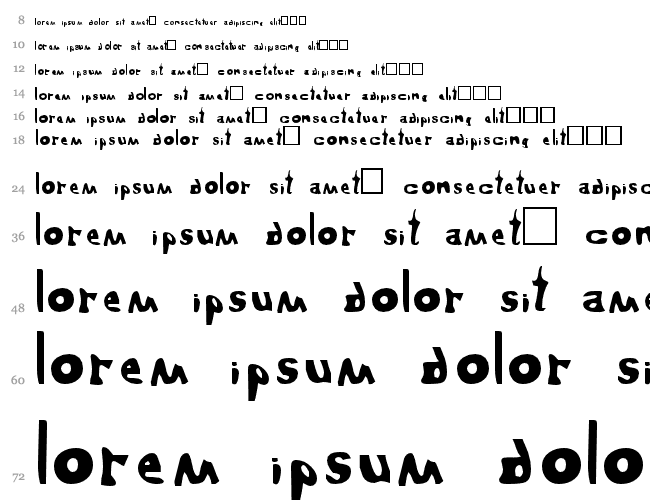 8 lorem ipsum dolor sit amet□ consectetuer adipiscing elit□□□
10 lorem ipsum dolor sit amet□ consectetuer adipiscing elit□□□
12 lorem ipsum dolor sit amet□ consectetuer adipiscing elit□□□
14 lorem ipsum dolor sit amet□ consectetuer adipiscing elit□□□
16 lorem ipsum dolor sit amet□ consectetuer adipiscing elit□□□
18 lorem ipsum dolor sit amet□ consectetuer adipiscing elit□□□
24 lorem ipsum dolor sit amet□ consectetuer adipisc
36 lorem ipsum dolor sit amet□ con
48 lorem ipsum dolor sit ame
60 lorem ipsum dolor si
72 lorem ipsum dolo